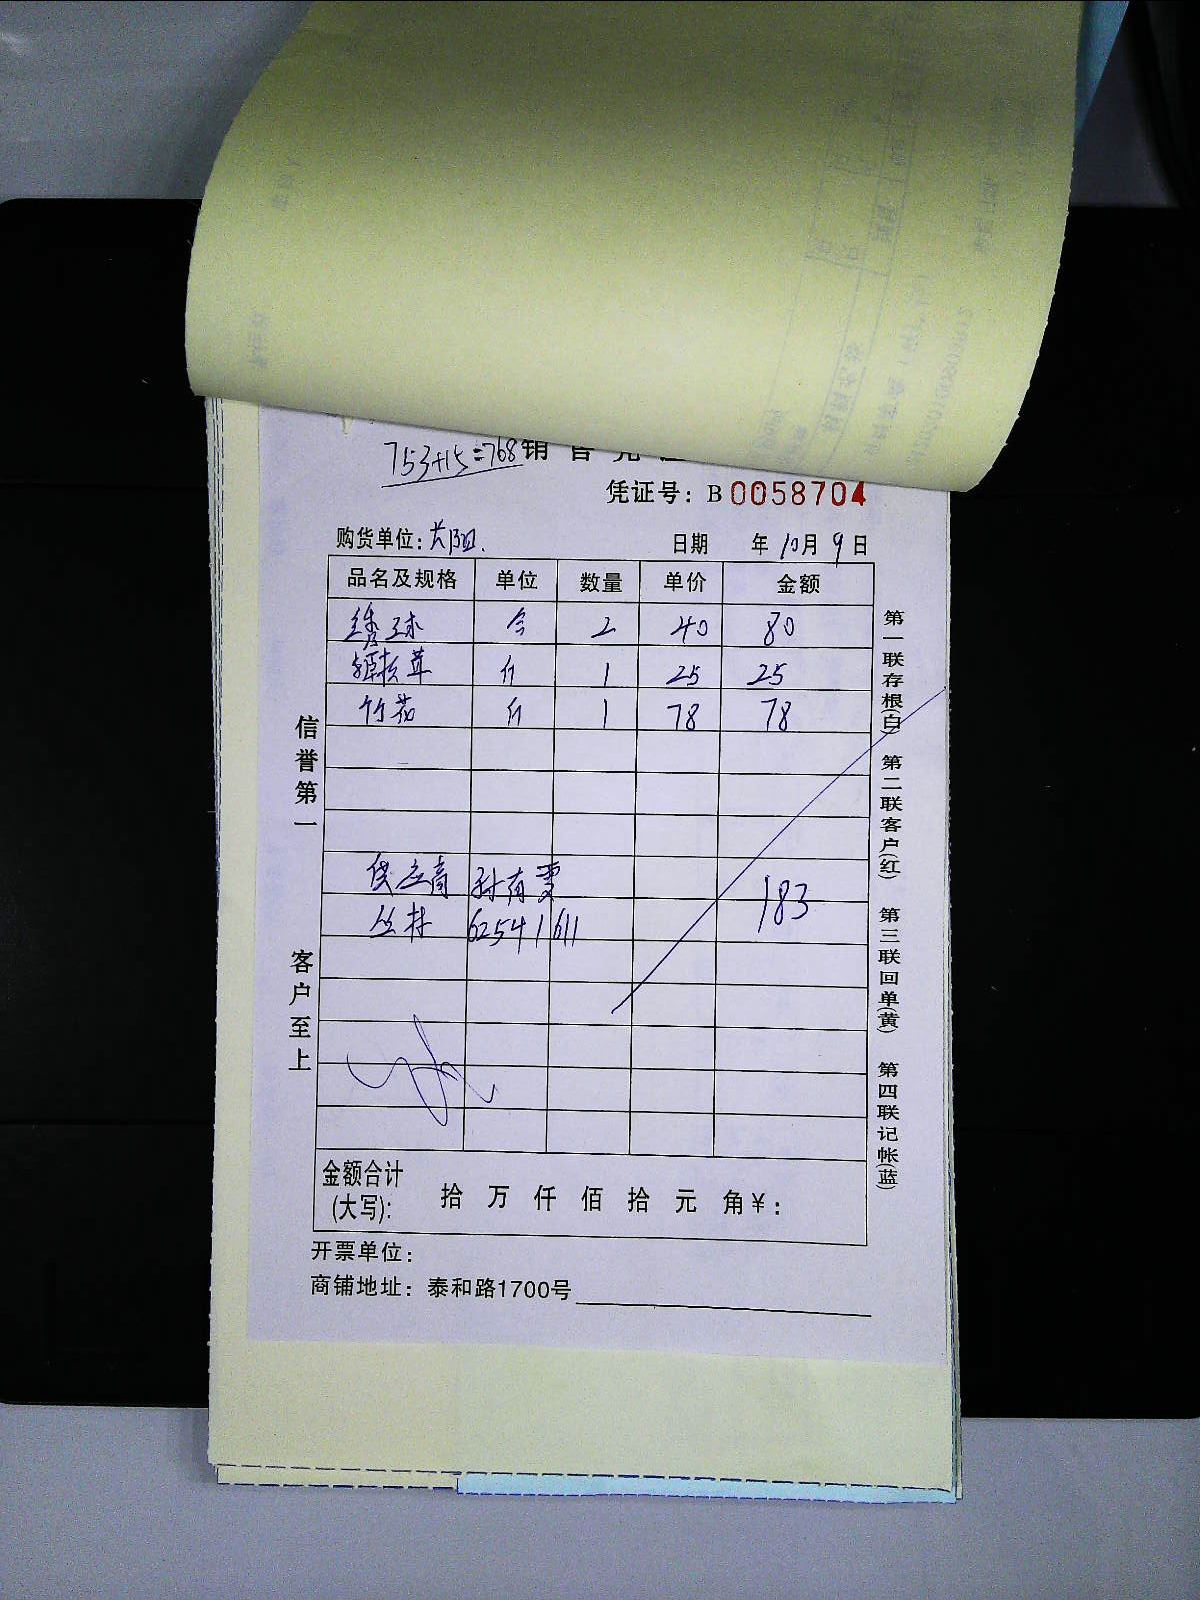 753+15=768
凭证号：B 0058704
购货单位： 日期 年 10月 9日
品名及规格 单位 数量 单价 金额
绣球 个 2 40 80
斤 1 25 25
竹花 斤 1 78 78
信誉第一
客户至上
供应商 孙有雯
丛林 62541611
183
金额合计
(大写)： 拾 万 仟 佰 拾 元 角¥：
开票单位：
商铺地址：泰和路1700号
第一联存根(白) 第二联客户(红) 第三联回单(黄) 第四联记帐(蓝)